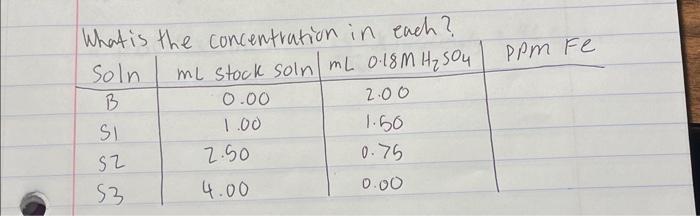 What is the concentration in each?
Soln mL stock soln mL 0.18M H2SO4 PPM Fe
B 0.00 2.00
S1 1.00 1.50
S2 2.50 0.75
S3 4.00 0.00